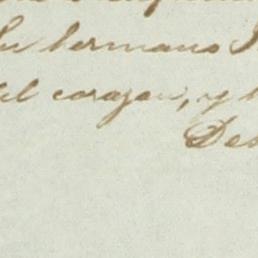 Su hermano
del corazon, y
Des